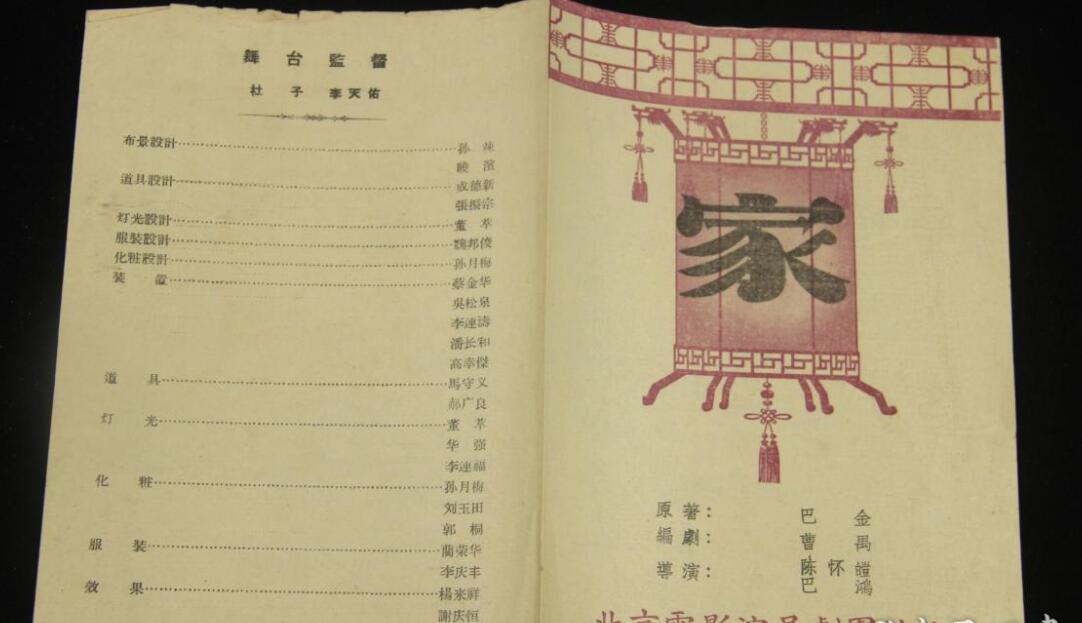 舞台監督
杜子 李天佑
布景設計……孙竦
睖濱
道具設計……成德新
張振宗
灯光設計……董萃
服裝設計……魏邦俊
化粧設計……孙月梅
装置……蔡金华
吳松泉
李連濤
潘长和
高幸傑
道具……馬守义
郝广良
灯光……董萃
华强
李連福
化粧……孙月梅
刘玉田
郭桐
服装……藺荣华
李庆丰
效果……楊来祥
謝庆恒
家
原著：巴金
編劇：曹禺
導演：陈怀皚
巴鴻
北京電影演員劇團